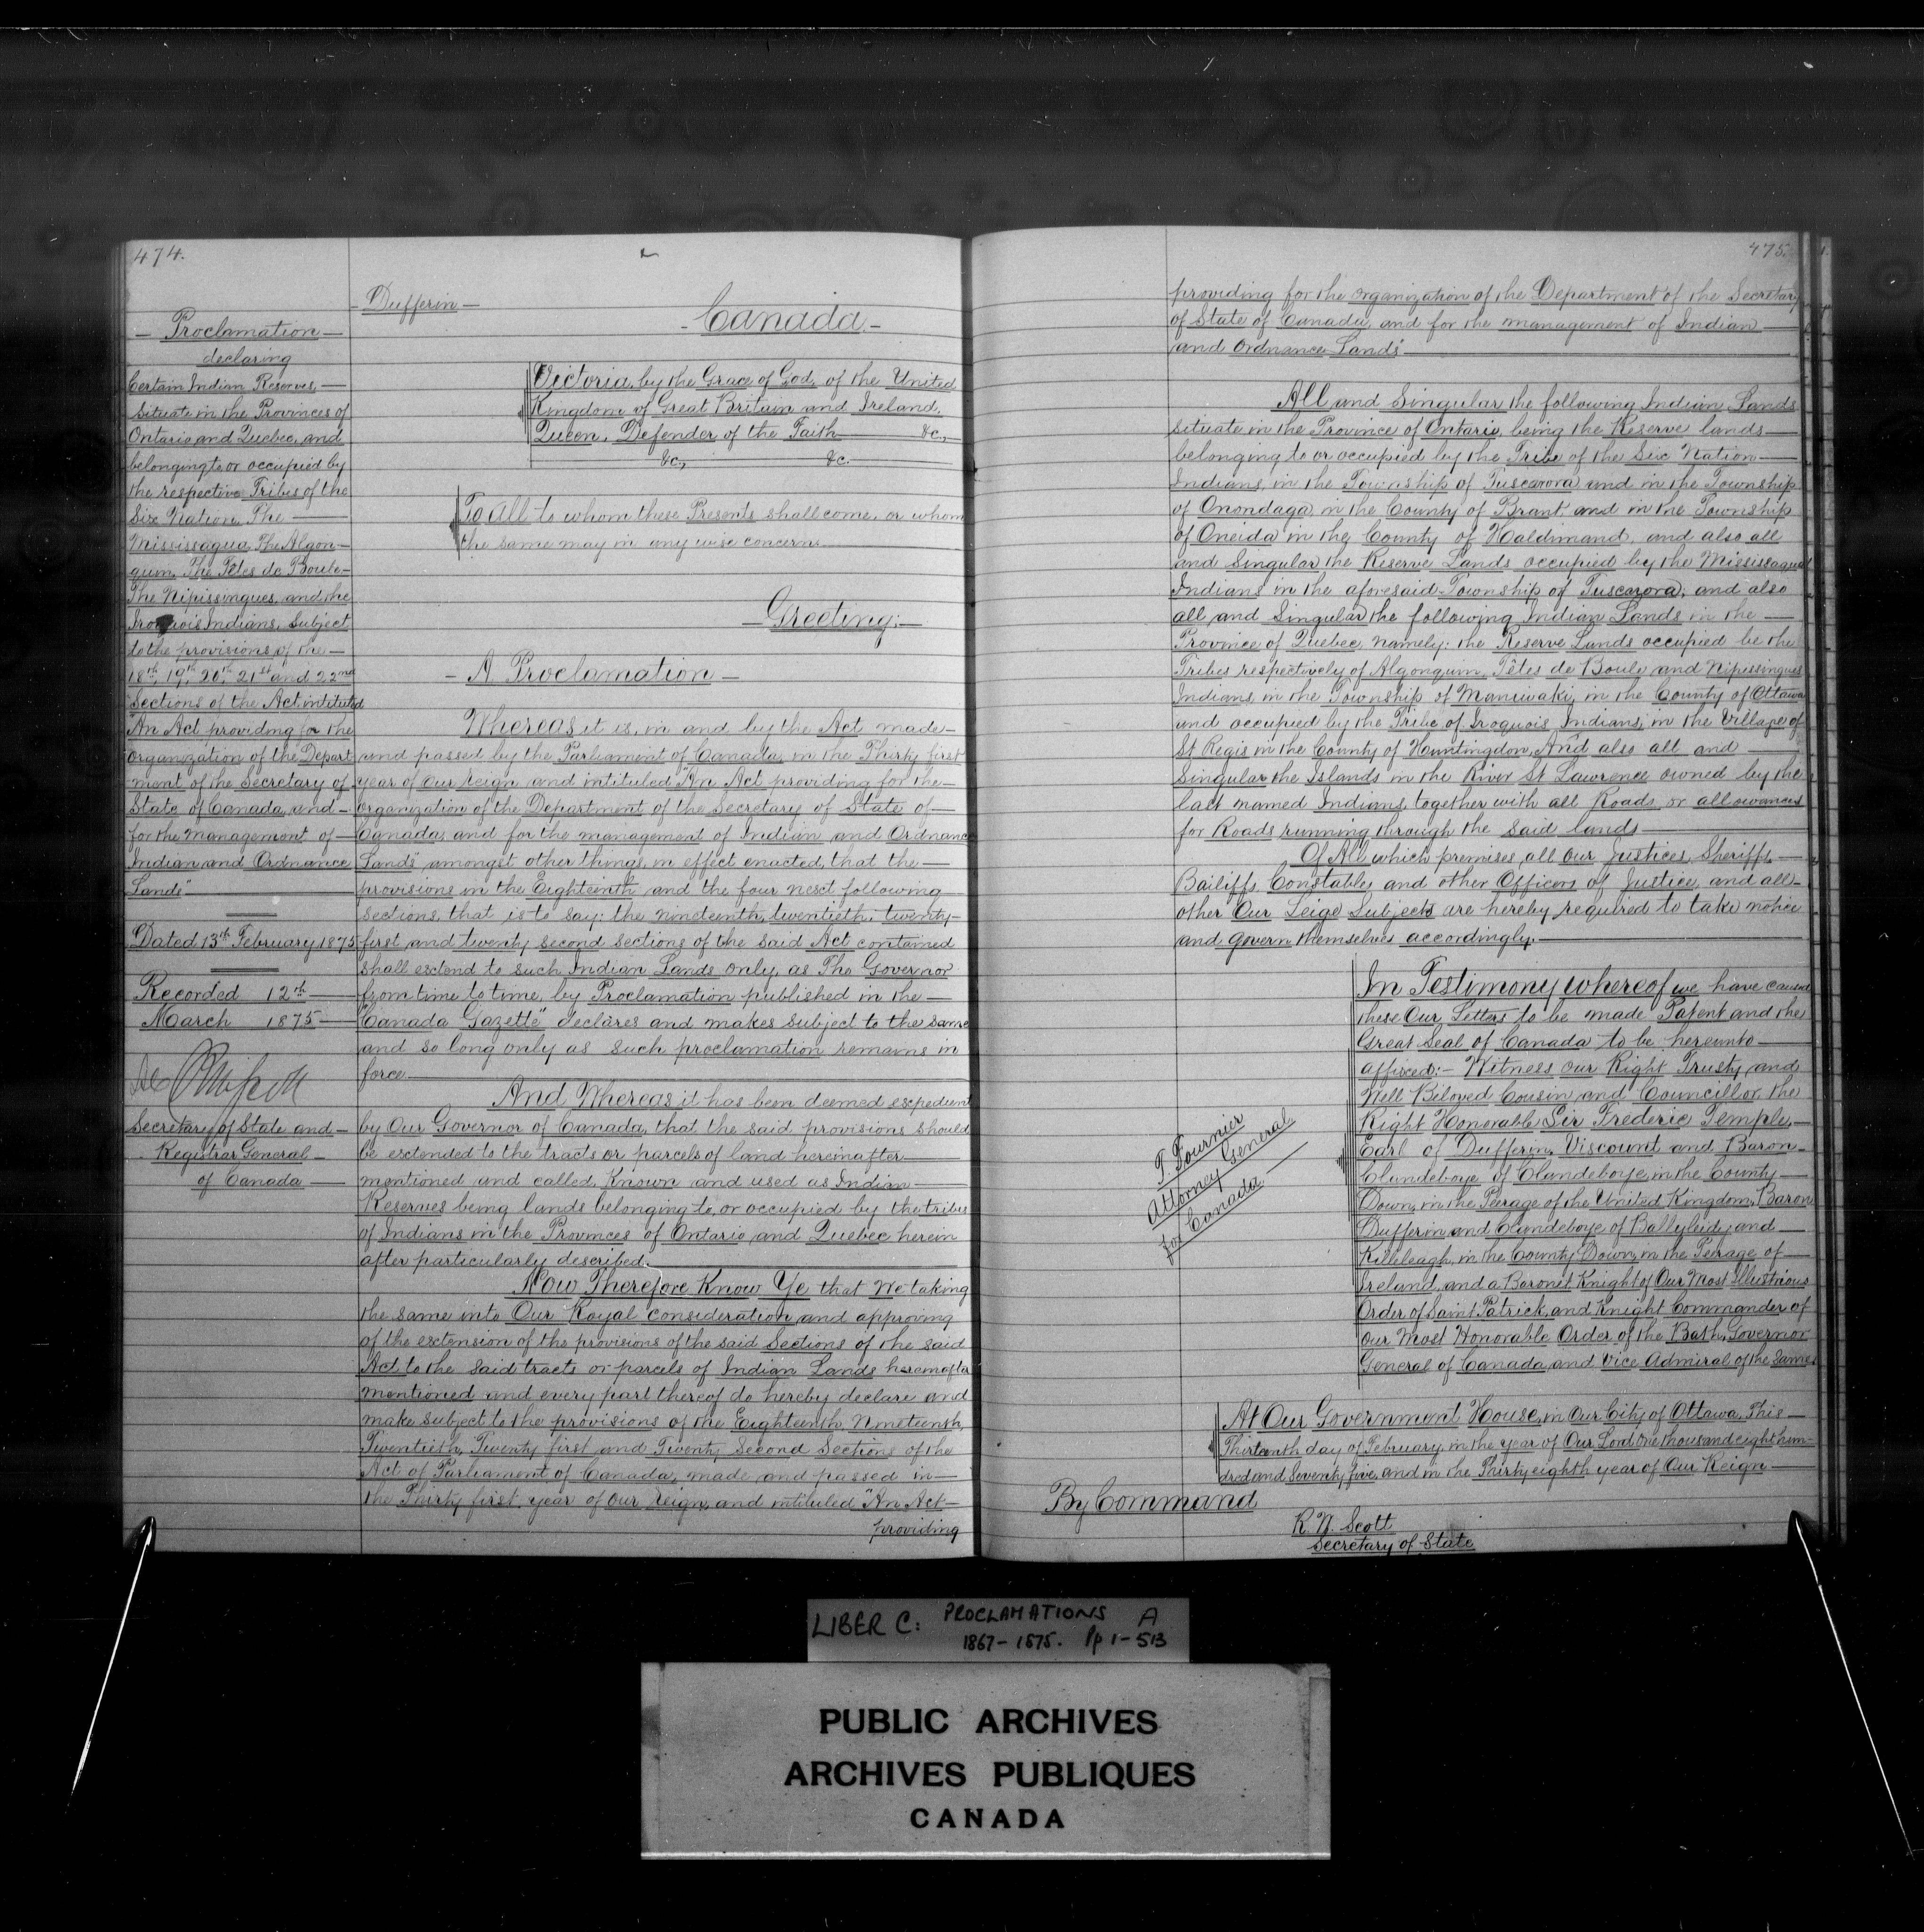 474.
Proclamation
declaring
Certain Indian Reserves,
Situate in the Provinces of
Ontario and Quebec, and
belonging to or occupied by
the respective Tribes of the
Six Nation, The
Mississagua, The Algon-
quin, The Têtes de Boule-
The Nipissingues, and the
Iroquois Indians, Subject
to the provisions of the
18th, 19th, 20th, 21st and 22nd
Sections of the Act intituled
"An Act providing for the
Organization of the Depart
ment of the Secretary of
State of Canada, and
for the management of
Indian and Ordnance
Lands"
Dated 13th February 1875
Recorded 12th
March 1875
Secretary of State and
Registrar General
of Canada
Dufferin
Canada
Victoria, by the Grace of God, of the United
Kingdom of Great Britain and Ireland,
Queen, Defender of the Faith &c,
&c, &c.
To all to whom these Presents shall come, or whom
the same may in any wise concern.
Greeting:
A Proclamation
Whereas it is, in and by the Act made
and passed by the Parliament of Canada, in the Thirty first
year of Our reign and intituled "An Act providing for the
organization of the Department of the Secretary of State of
Canada, and for the management of Indian and Ordnance
Lands" amongst other things, in effect enacted, that the
provisions in the Eighteenth and the four next following
sections, that is to say; the nineteenth, twentieth, twenty-
first and twenty second sections of the said Act contained
shall extend to such Indian Lands only, as The Governor
from time to time, by Proclamation published in the
"Canada Gazette" declares and makes subject to the same
and so long only as such proclamation remains in
force
And Whereas it has been deemed expedient
by Our Governor of Canada, that the said provisions should
be extended to the tracts or parcels of land hereinafter
mentioned and called, Known and used as Indian
Reserves being lands belonging to, or occupied by the tribes
of Indians in the Provinces of Ontario and Quebec herein
after particularly described.
Now Therefore Know Ye that We taking
the same into Our Royal consideration and approving
of the extension of the provisions of the said Sections of the said
Act, to the said tracts or parcels of Indian Lands hereinafter
mentioned and every part thereof do hereby declare and
make subject to the provisions of the Eighteenth, Nineteenth,
Twentieth, Twenty first and Twenty Second Sections of the
Act of Parliament of Canada, made and passed in
the Thirty first year of Our reign, and intituled "An Act
providing
475.
providing for the organization of the Department of the Secretary
of State of Canada, and for the management of Indian
and Ordnance Lands"
All and Singular the following Indian Lands
situate in the Province of Ontario, being the Reserve lands
belonging to or occupied by the Tribe of the Six Nation
Indians, in the Township of Tuscarora and in the Township
of Onondaga in the County of Brant and in the Township
of Oneida in the County of Haldimand, and also all
and Singular the Reserve Lands occupied by the Mississagua
Indians in the aforesaid Township of Tuscarora; and also
all and Singular the following Indian Lands in the
Province of Quebec, namely: the Reserve Lands occupied be the
Tribes respectively of Algonquin, Têtes de Boule and Nipissingues
Indians, in the Township of Maniwaki, in the County of Ottawa
and occupied by the Tribe of Iroquois Indians, in the Village of
St Regis in the County of Huntingdon, And also all and
Singular the Islands in the River St Lawrence owned by the
last named Indians, together with all Roads, or allowances
for Roads running through the said lands
Of All which premises, all Our Justices, Sheriffs,
Bailiffs, Constables and other Officers of Justice, and all
other Our Leige Subjects are hereby required to take notice
and govern themselves accordingly.
In Testimony whereof we have caused
these Our Letters to be made Patent and the
Great Seal of Canada to be hereunto
affixed:- Witness Our Right Trusty and
Well Beloved Cousin and Councillor the
Right Honorable Sir Frederic Temple,
Earl of Dufferin, Viscount and Baron
Clandeboye of Clandeboye, in the County
Down, in the Peerage of the United Kingdom, Baron
Dufferin and Clandeboye of Ballyleidy and
Killileagh, in the County Down, in the Peerage of
Ireland, and a Baronet, Knight of Our Most Illustrious
Order of Saint Patrick, and Knight Commander of
Our Most Honorable Order of the Bath, Governor
General of Canada, and Vice Admiral of the Same
T. Fournier
Attorney General
for Canada
At Our Government House, in Our City of Ottawa, This
Thirteenth day of February, in the year of Our Lord One thousand eight hun-
dred and Seventy five, and in the Thirty eighth year of Our Reign
By Command
R. W. Scott
Secretary of State
LIBER C: PROCLAMATIONS A
1867-1875. Pp 1-513
PUBLIC ARCHIVES
ARCHIVES PUBLIQUES
CANADA